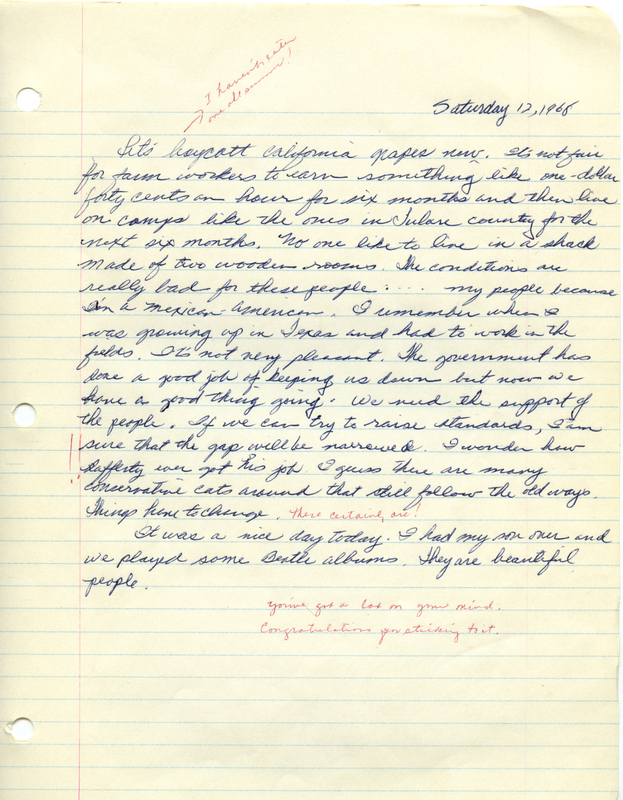 I haven't eaten
one all summer!
Saturday 12, 1968
Let's boycott California grapes now. It's not fair
for farm workers to earn something like one-dollar
forty cents an hour for six months and then live
on camps like the ones in Tulare country for the
next six months. No one like to live in a shack
made of two wooden rooms. The conditions are
really bad for these people . . . . my people because
I'm a Mexican-American. I remember when I
was growing up in Texas and had to work in the
fields. It's not very pleasant. The government has
done a good job of keeping us down but now we
have a good thing going. We need the support of
the people. If we can try to raise standards, I am
sure that the gap will be narrowed. I wonder how
Rafferty ever got his job. I guess there are many
conservative cats around that still follow the old ways.
Things have to change. There certainly are!
It was a nice day today. I had my son over and
we played some Beatle albums. They are beautiful
people.
You've got a lot on your mind.
Congratulations for sticking to it.